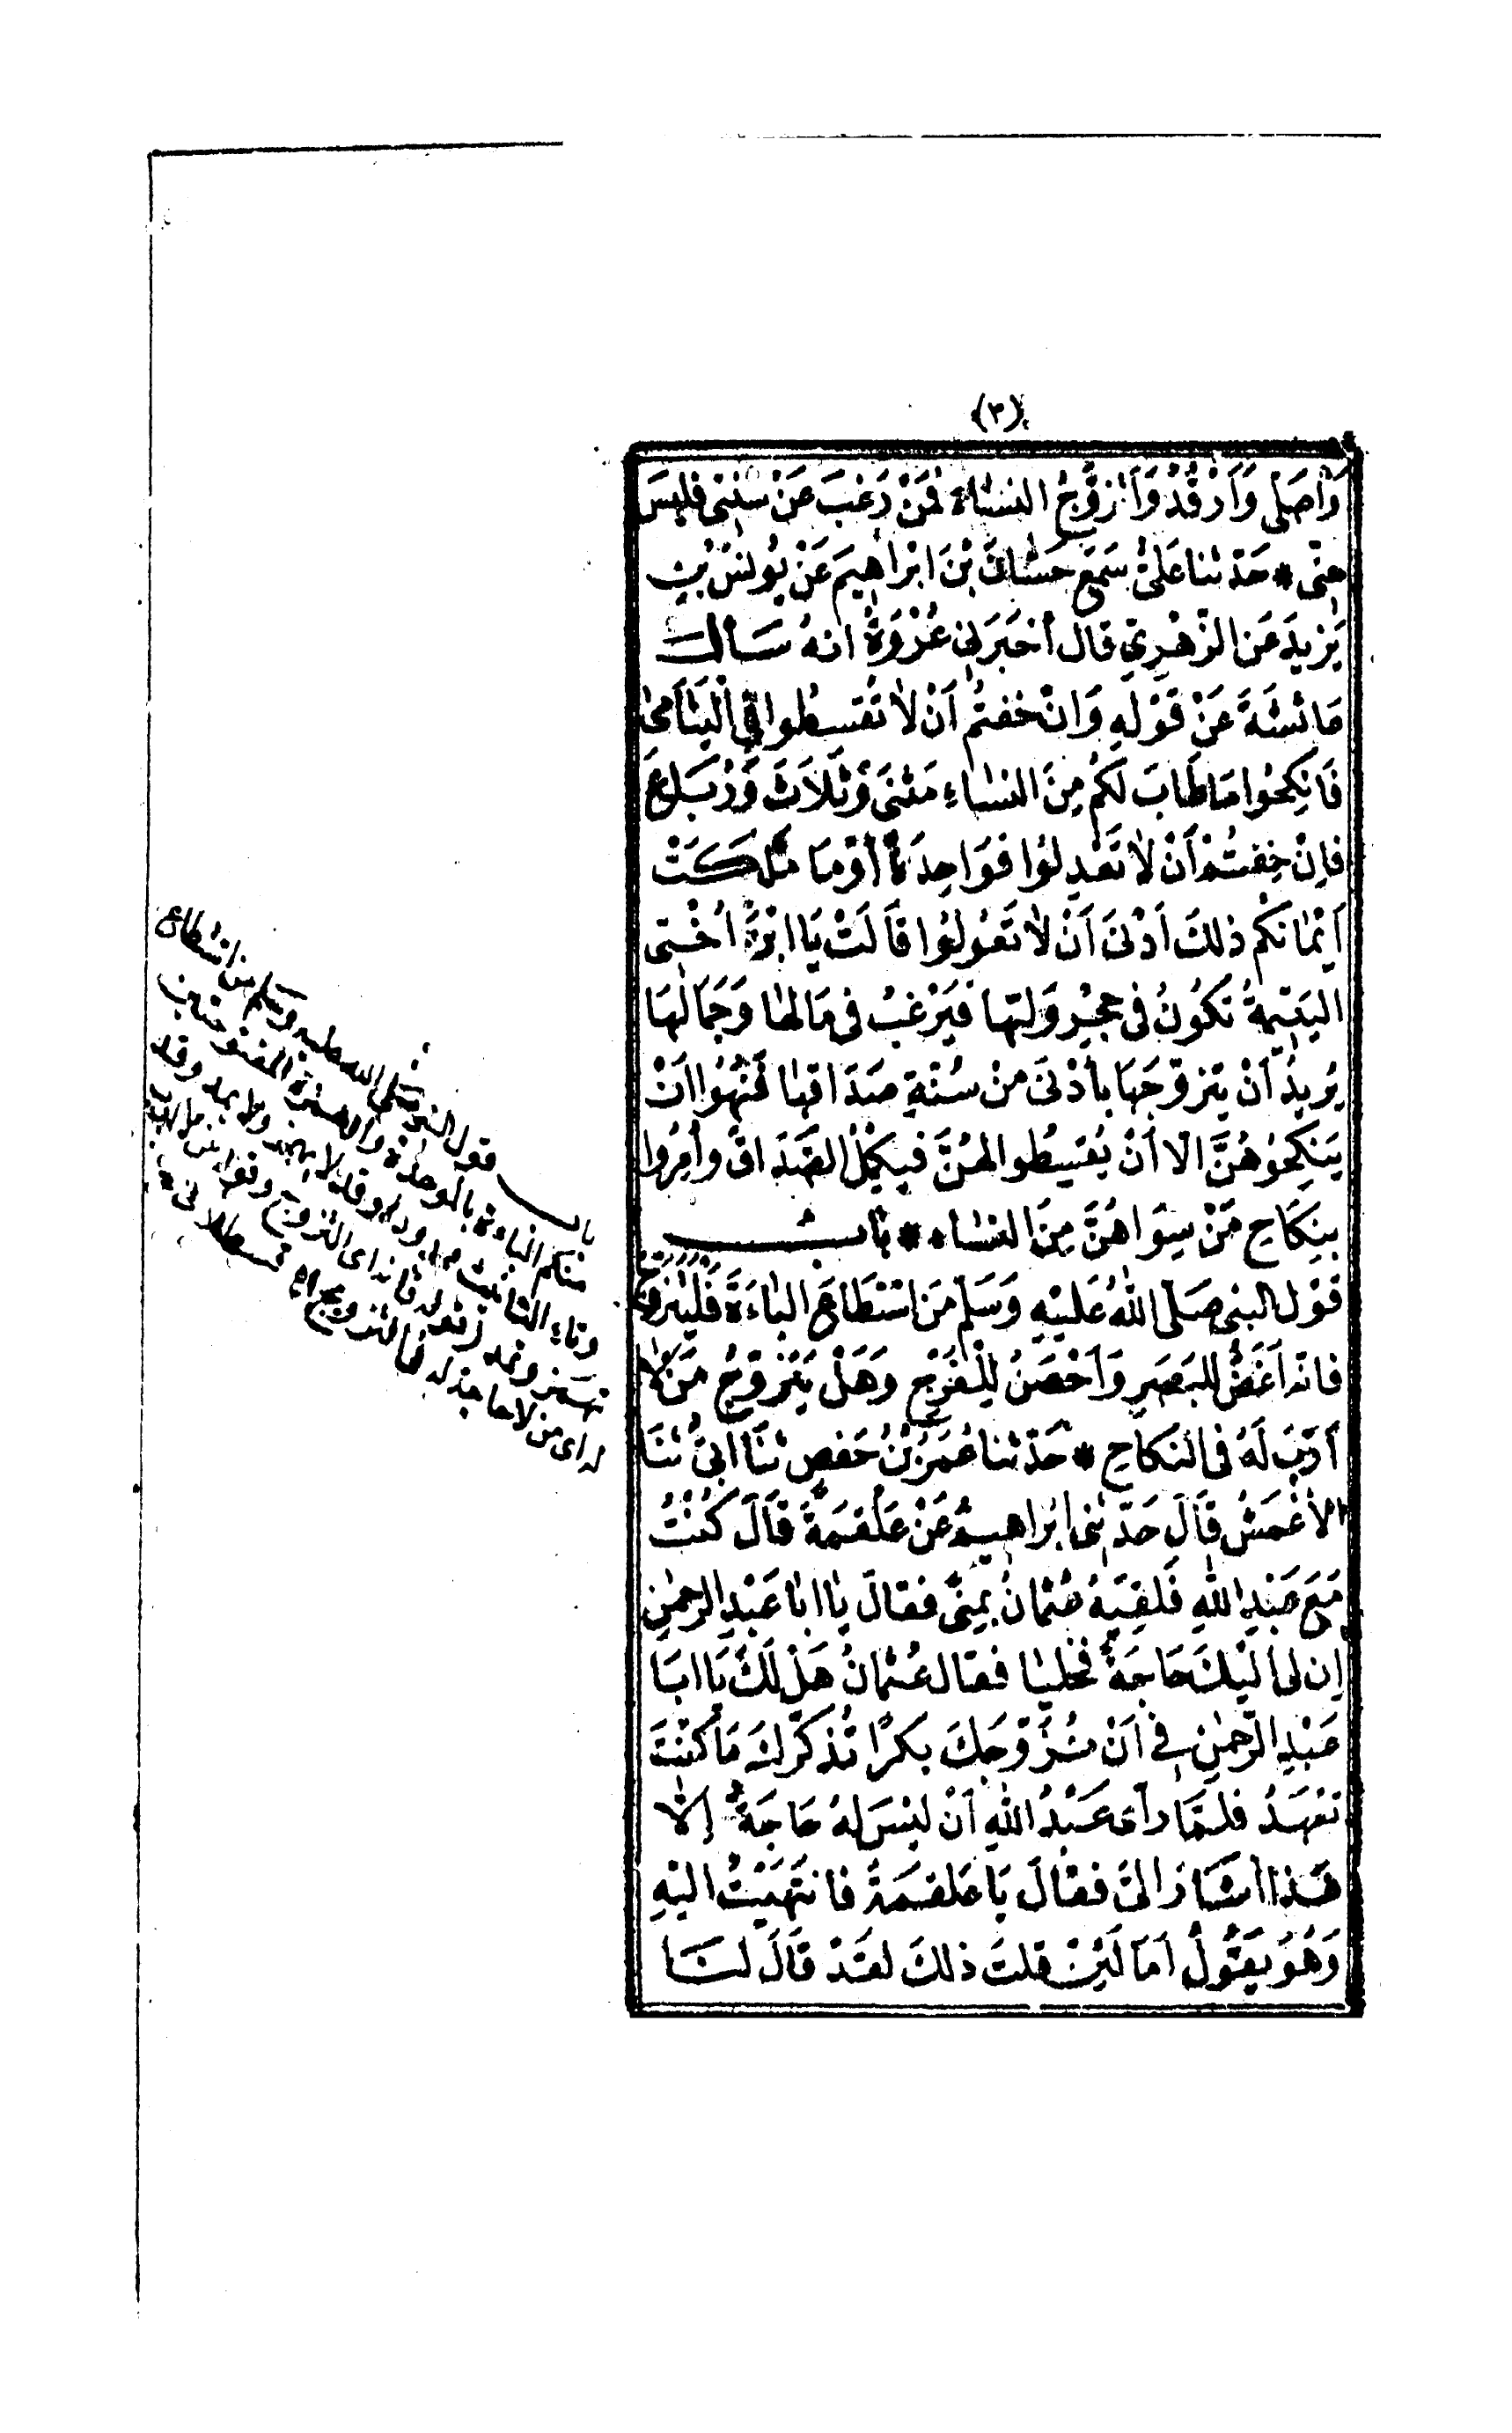 (٣)
وَأُصَلِّي وَأَرْقُدُ وَأَتَزَوَّجُ النساءَ فَمَنْ رَغِبَ عَنْ سُنَّتِي فليسَ
مِنِّي * حَدَّثنا عَلِيٌّ سَمِعَ حَسَّانَ بْنَ ابْرَاهِيمَ عَنْ يُونُسَ بْنِ
يَزِيدَ عَنِ الزُّهْرِيِّ قالَ أَخبَرَنِي عُرْوَةُ انهُ سَأَلَ
عَائشَةَ عَنْ قَوْلِهِ وَانْ خِفتُمْ أَنْ لَا تُقْسِطُوا فِي الْيَتَامَى
فَانْكِحُوا مَا طَابَ لَكُمْ مِنَ النساءِ مَثْنَى وَثَلَاثَ وَرُبَاعَ
فَإِنْ خِفْتُمْ أَنْ لَا تَعْدِلُوا فَوَاحِدَةً أَوْ مَا مَلَكَتْ
أَيْمَانُكُمْ ذلِكَ أَدْنَى أَنْ لَا تَعُولُوا قَالَتْ يَا ابْنَ أُخْتِي
اليَتِيمَةُ تَكُونُ فِي حَجْرِ وَلِيِّهَا فَيَرْغَبُ فِي مَالِهَا وَجَمَالِهَا
يُرِيدُ أَنْ يَتَزَوَّجَهَا بِأَدْنَى مِنْ سُنَّةِ صَدَاقِهَا فَنُهُوا أَنْ
يَنْكِحُوهُنَّ الَّا أَنْ يُقْسِطُوا لهُنَّ فَيُكَمِّلُوا الصَّدَاقَ وَأُمِرُوا
بِنِكَاحِ مَنْ سِوَاهُنَّ مِنَ النساءِ * بَابُ
قَوْلِ النبيِّ صَلَّى اللهُ عَلَيْهِ وَسَلَّمَ مَنِ اسْتَطَاعَ البَاءَةَ فَلْيَتَزَوَّجْ
فانَّهُ أَغَضُّ لِلبَصَرِ وَأَحْصَنُ لِلْفَرْجِ وَهَلْ يَتَزَوَّجُ مَنْ لَا
أَرَبَ لَهُ فِي النكَاحِ * حَدَّثنا عُمَرُ بْنُ حَفصٍ ثنَا أَبِي ثنَا
الأَعْمَشُ قَالَ حَدَّثنِي ابْرَاهِيمُ عَنْ عَلْقَمَةَ قَالَ كُنْتُ
مَعَ عَبْدِ اللهِ فَلَقِيَهُ عُثْمَانُ بِمِنًى فقالَ يَا ابَا عَبْدِ الرحمنِ
إِنَّ لِي الَيْكَ حَاجَةً فَخَلَيَا فقال عُثْمَانُ هَلْ لَكَ يَا ابَا
عَبْدِ الرَّحْمنِ فِي أَنْ نُزَوِّجَكَ بِكْرًا تُذَكِّرُكَ مَا كُنْتَ
تَعْهَدُ فَلَمَّا رَأَى عَبْدُ اللهِ أَنْ لَيْسَ لهُ حَاجَةٌ إِلَّا
هَذَا أَشَارَ الَيَّ فقالَ يَا عَلقمَةُ فانتَهَيْتُ الَيْهِ
وَهُوَ يَقُولُ أَمَا لَئِنْ قلتَ ذلكَ لقَدْ قَالَ لنَا
باب قول النبي صلى الله عليه وسلم من استطاع
منكم الباءة بالموحدة والهمزة المفتوحتين
وتاء التأنيث
لا حاجة له